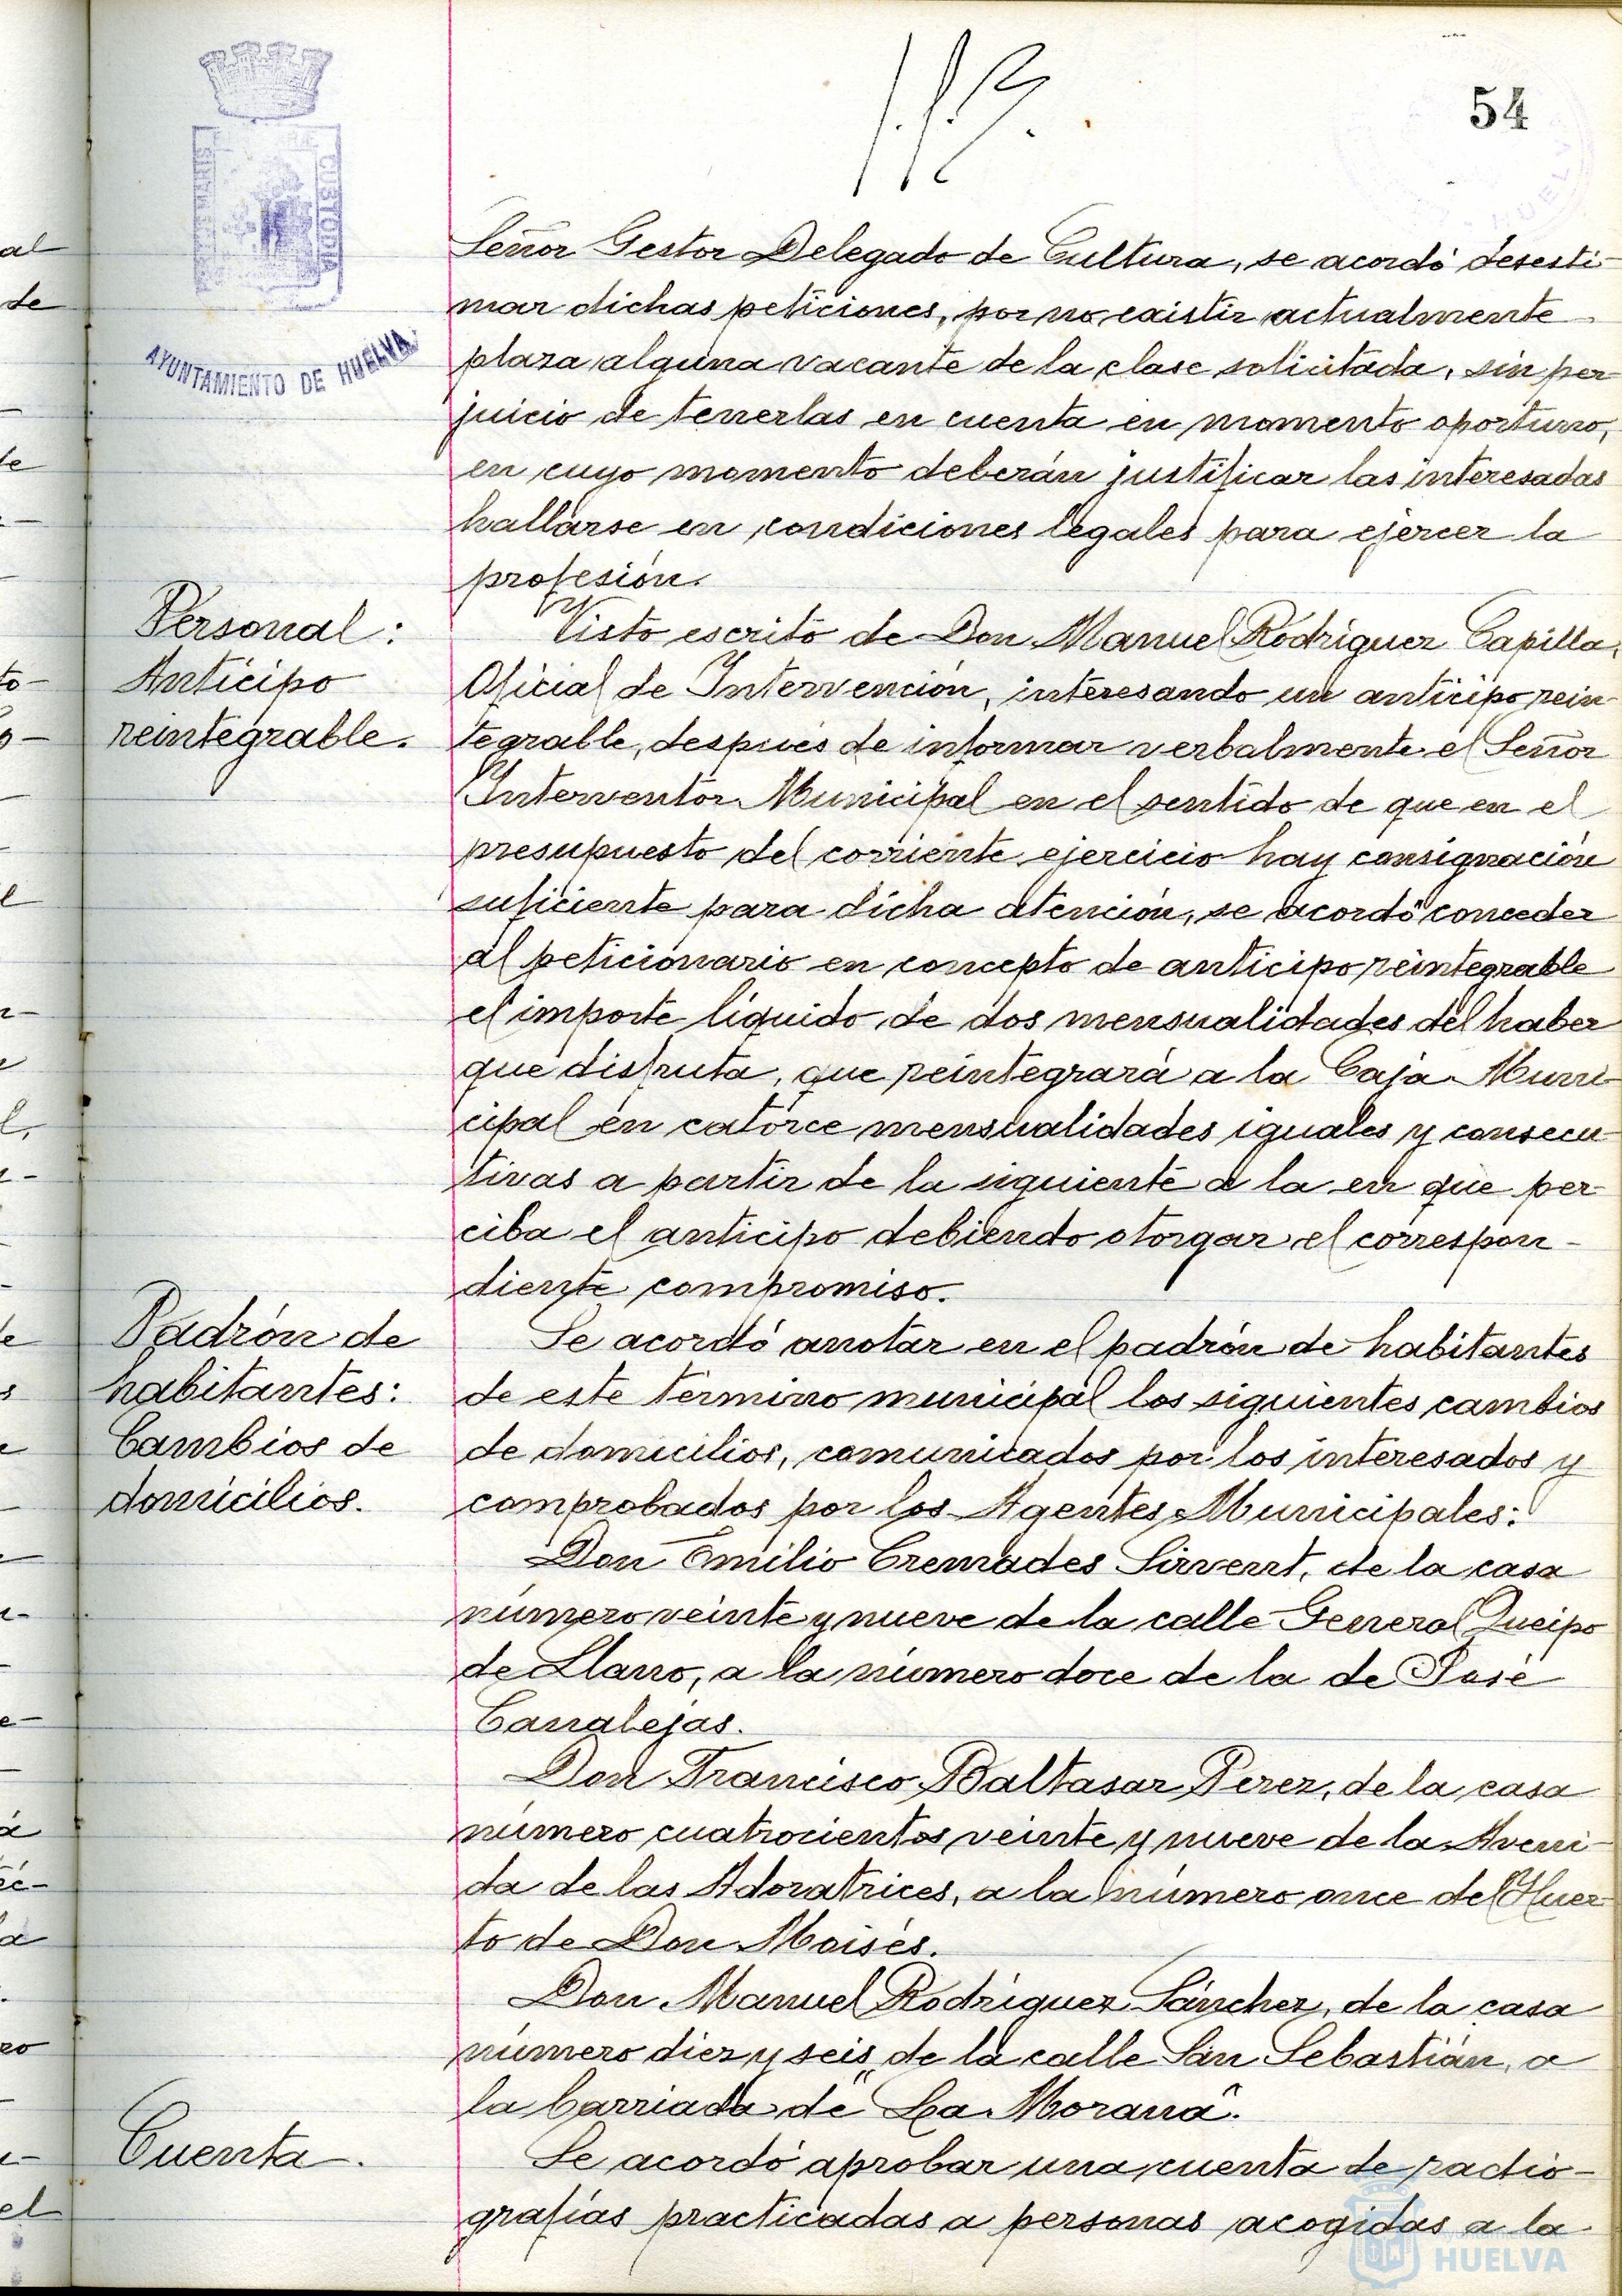 54
AYUNTAMIENTO DE HUELVA
CUSTODIA
Señor Gestor Delegado de Cultura, se acordó desesti-
mar dichas peticiones, por no existir actualmente
plaza alguna vacante de la clase solicitada, sin per-
juicio de tenerlas en cuenta en momento oportuno,
en cuyo momento deberán justificar las interesadas
hallarse en condiciones legales para ejercer la
profesión.
Personal:
Anticipo
reintegrable.
Visto escrito de Don Manuel Rodríguez Capilla,
Oficial de Intervención, interesando un anticipo rein-
tegrable, después de informar verbalmente el Señor
Interventor Municipal en el sentido de que en el
presupuesto del corriente ejercicio hay consignación
suficiente para dicha atención, se acordó conceder
al peticionario en concepto de anticipo reintegrable
el importe líquido de dos mensualidades del haber
que disfruta, que reintegrará a la Caja Muni-
cipal en catorce mensualidades iguales y consecu-
tivas a partir de la siguiente a la en que per-
ciba el anticipo debiendo otorgar el correspon-
diente compromiso.
Padrón de
habitantes:
Cambios de
domicilios.
Se acordó anotar en el padrón de habitantes
de este término municipal los siguientes cambios
de domicilios, comunicados por los interesados y
comprobados por los Agentes Municipales:
Don Emilio Cremades Sirvent, de la casa
número veinte y nueve de la calle General Queipo
de Llano, a la número doce de la de José
Canalejas.
Don Francisco Baltasar Perez, de la casa
número cuatrocientos veinte y nueve de la Aveni-
da de las Adoratrices, a la número once del Huer-
to de Don Moisés.
Don Manuel Rodríguez Sánchez, de la casa
número diez y seis de la calle San Sebastián, a
la barriada de "La Morana".
Cuenta.
Se acordó aprobar una cuenta de radio-
grafías practicadas a personas acogidas a la
HUELVA